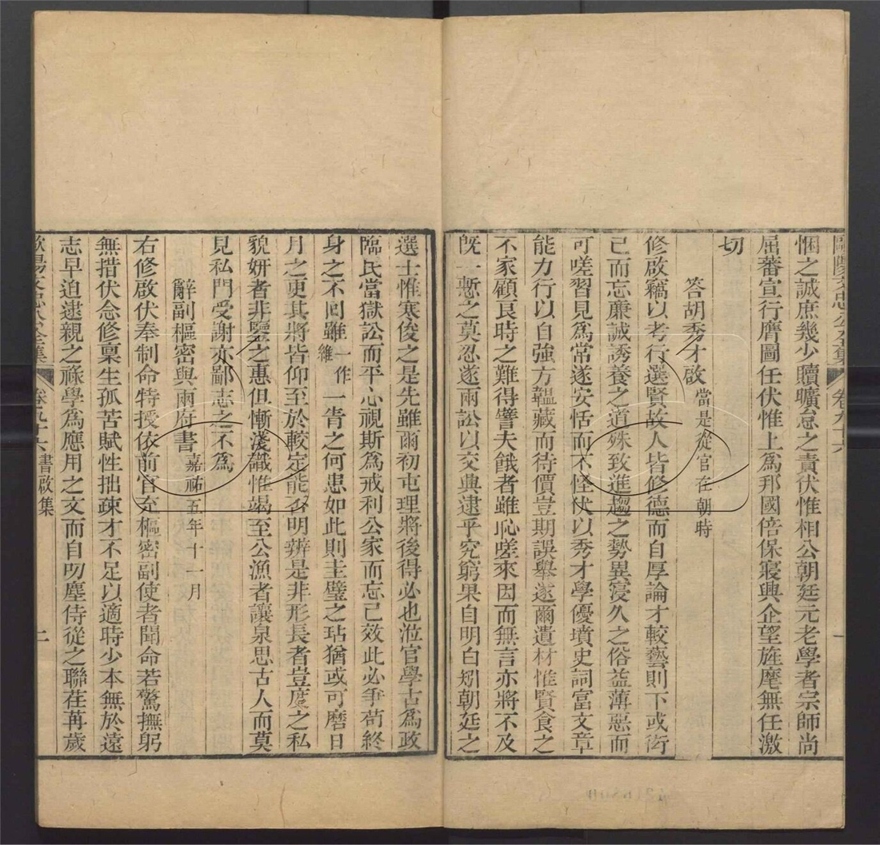 歐陽文忠公全集 卷九十六 一
悃之誠庶幾少贖曠怠之責伏惟相公朝廷元老學者宗師尚
屈蕃宣行膺圖任伏惟上為邦國倍保寢興企望旌麾無任激
切
答胡秀才啟 當是從官在朝時
修啟竊以考行選賢故人皆修德而自厚論才較藝則下或衒
己而忘廉誠誘養之道殊致進趨之勢異寖久之俗益薄惡而
可嗟習見為常遂安恬而不怪伏以秀才學優墳史詞富文章
能力行以自強方韞藏而待價豈期誤舉遂爾遺材惟賢食之
不家顧良時之難得譬夫餓者雖恥嗟來因而無言亦將不及
既一慙之莫忍遂兩訟以交興逮乎究窮果自明白矧朝廷之
選士惟寒俊之是先雖爾初屯理將後得必也涖官學古為政
臨民當獄訟而平心視斯為戒利公家而忘己效此必爭苟終
身之不回雖一作雜一眚之何患如此則圭璧之玷猶或可磨日
月之更其將皆仰至於較定能否明辨是非形長者豈度之私
貌妍者非鑒之惠但慚淺識惟竭至公漁者讓泉思古人而莫
見私門受謝亦鄙志之不為
辭副樞密與兩府書 嘉祐五年十一月
右修啟伏奉制命特授依前官充樞密副使者聞命若驚撫躬
無措伏念修稟生孤苦賦性拙疎才不足以適時少本無於遠
志早迫逮親之祿學為應用之文而自叨塵侍從之聯荏苒歲
歐陽文忠公全集 卷九十六 書啟集 二